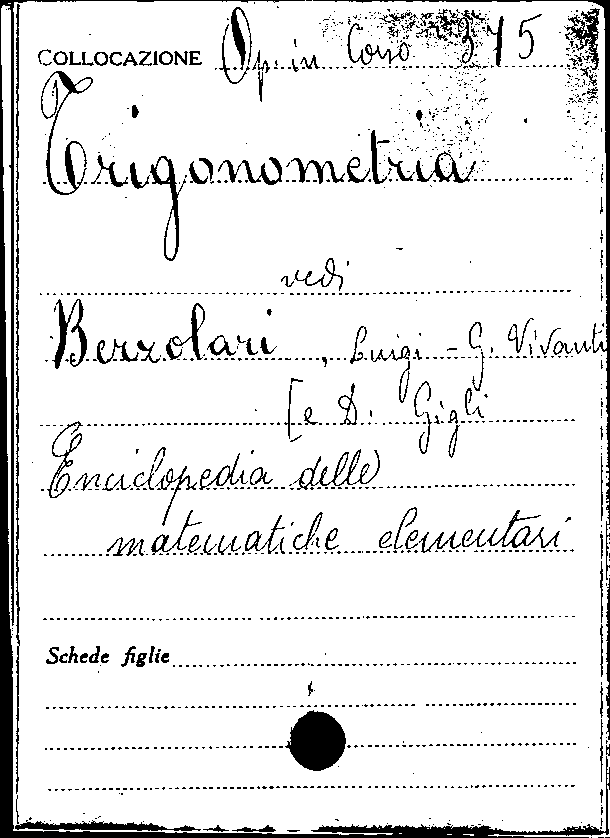 COLLOCAZIONE Op. in Corso 375
Trigonometria
vedi
Berzolari, Luigi - G. Vivanti
[e D. Gigli
Enciclopedia delle
matematiche elementari
Schede figlie